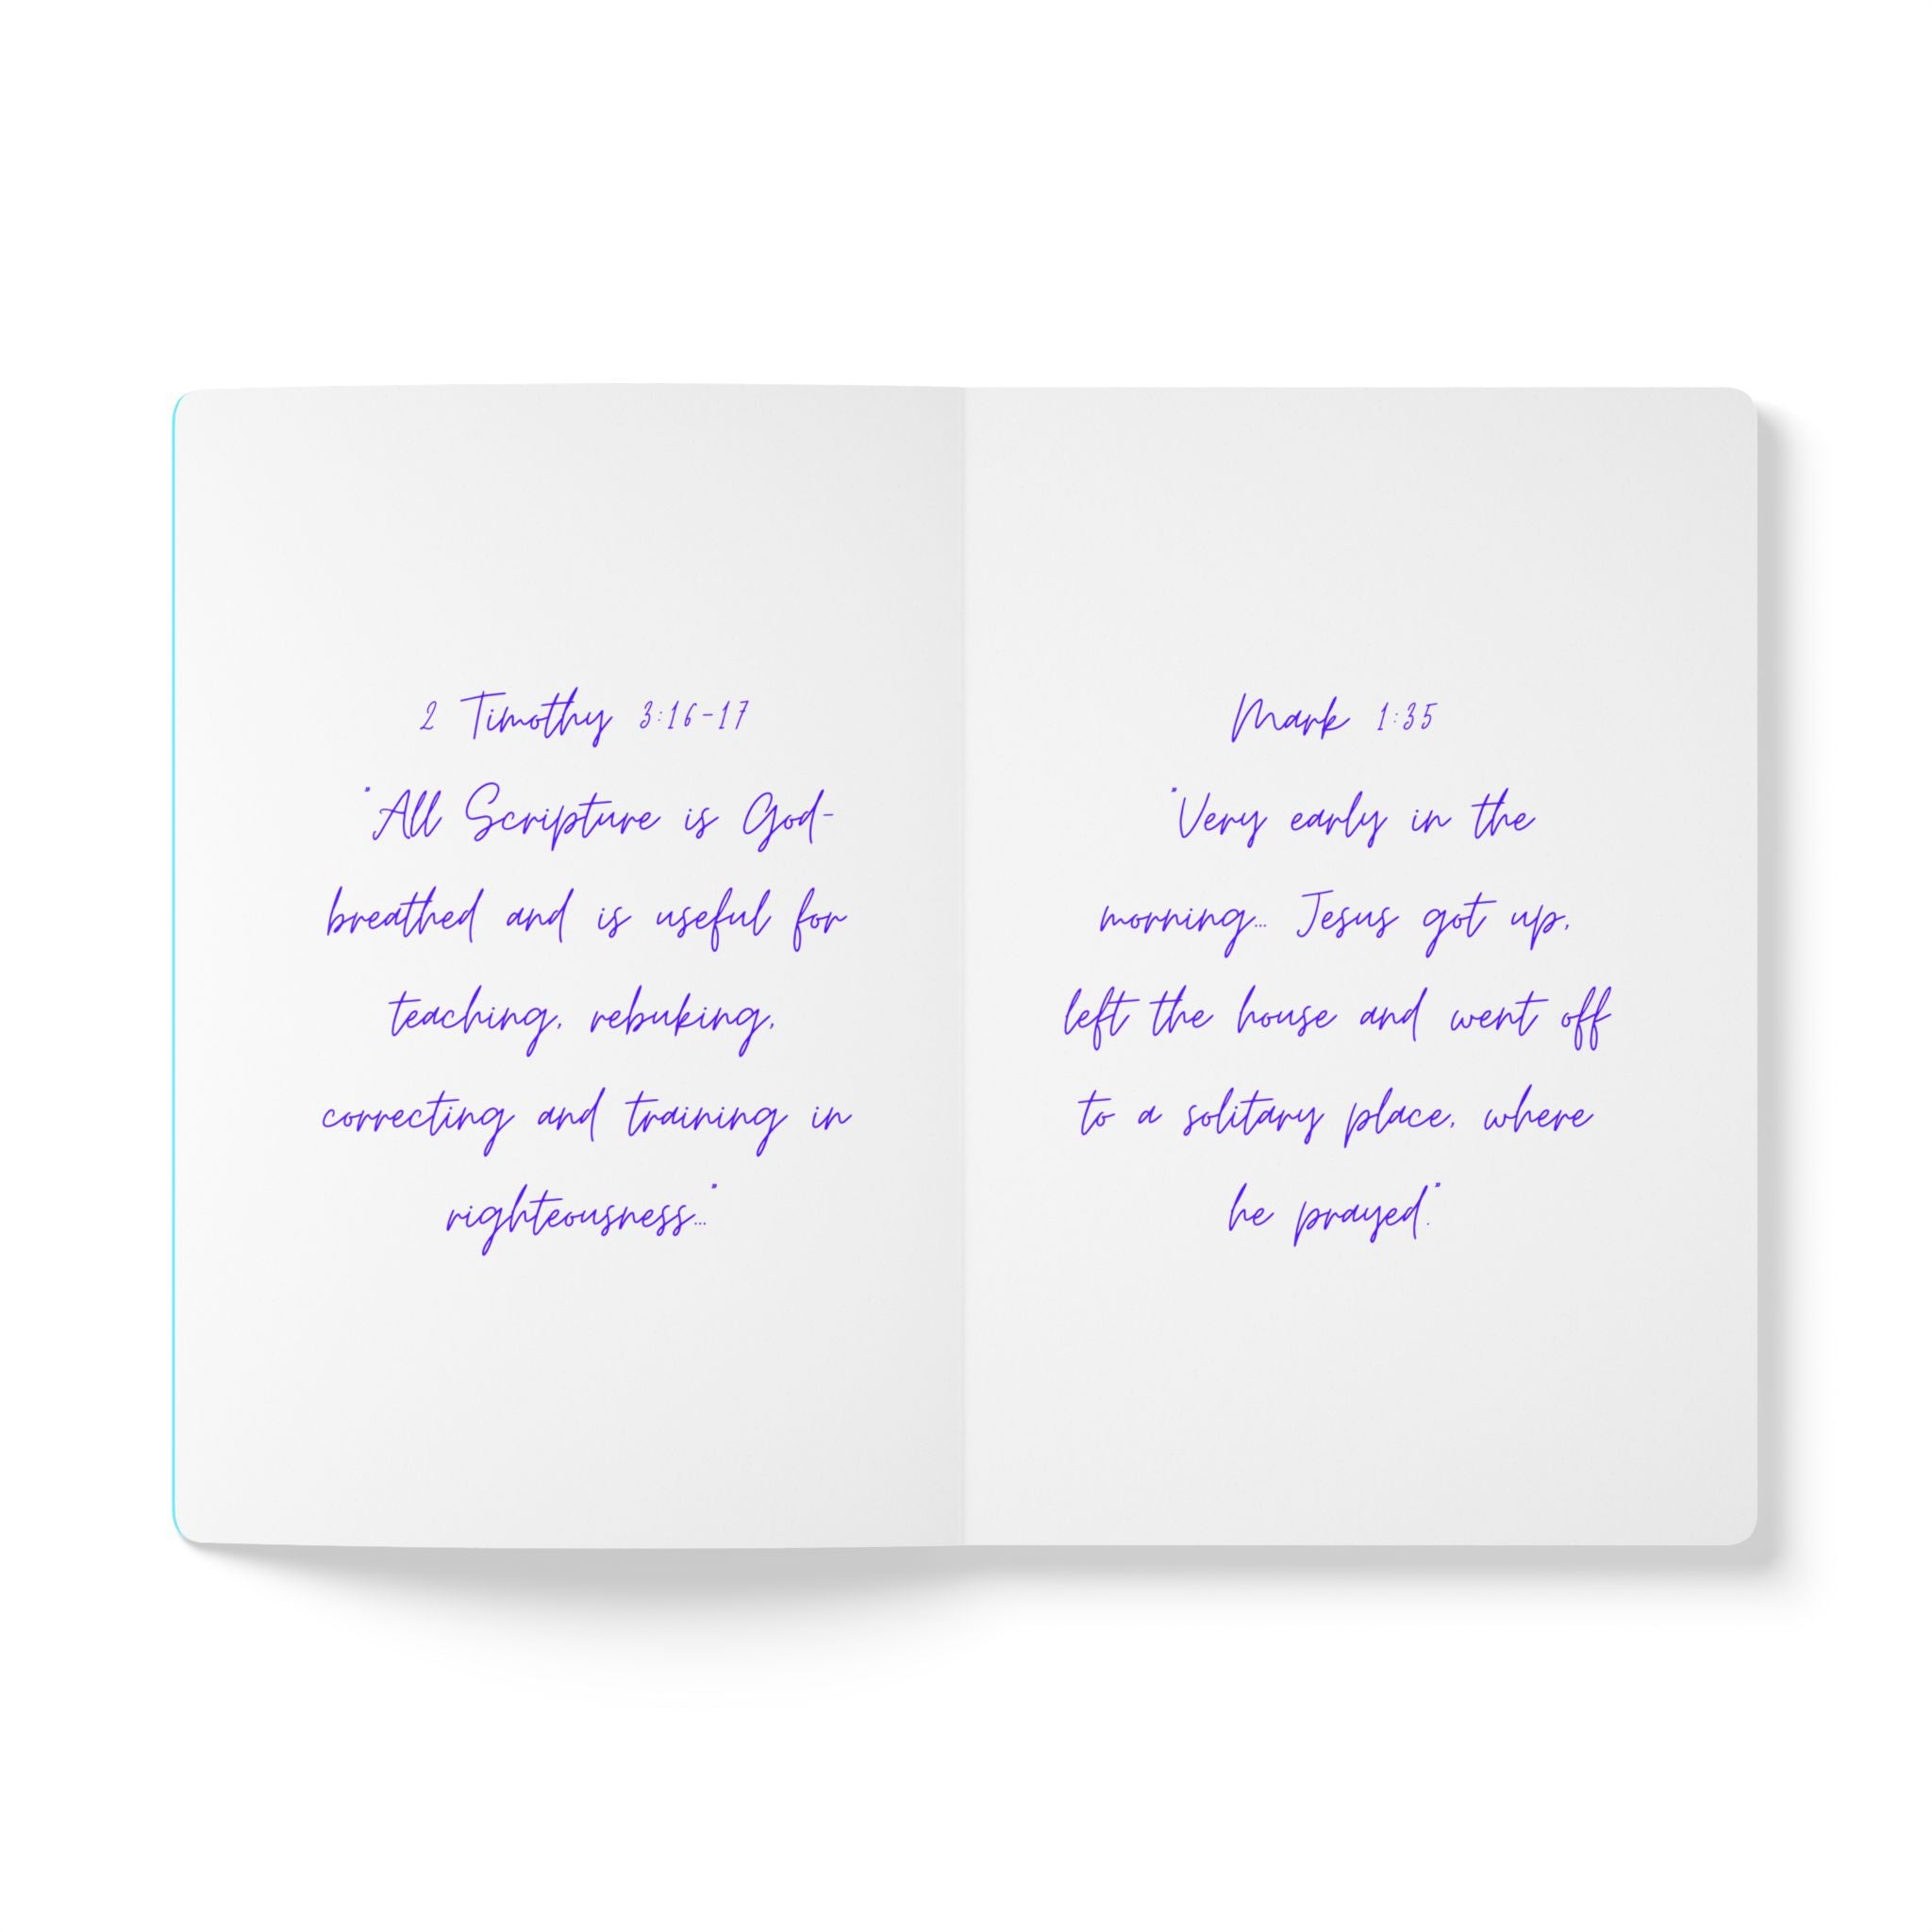 2 Timothy 3:16-17
"All Scripture is God-
breathed and is useful for
teaching, rebuking,
correcting and training in
righteousness..."
Mark 1:35
"Very early in the
morning... Jesus got up,
left the house and went off
to a solitary place, where
he prayed."